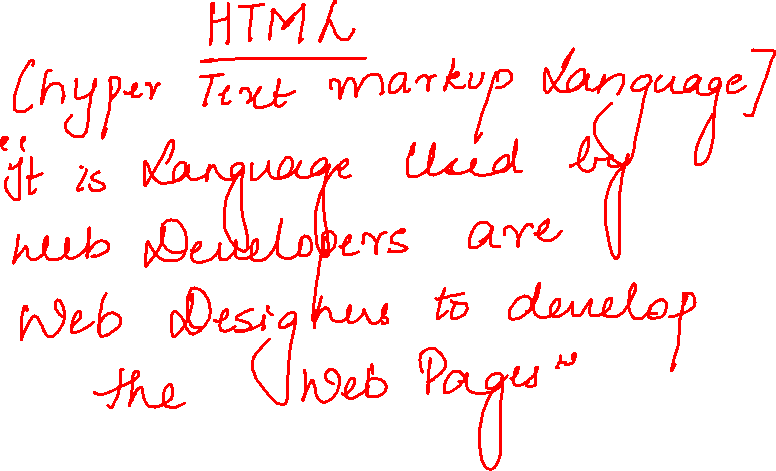 HTML
[hyper Text markup Language]
"It is Language Used by
web Developers are
Web Designers to develop
the Web Pages"